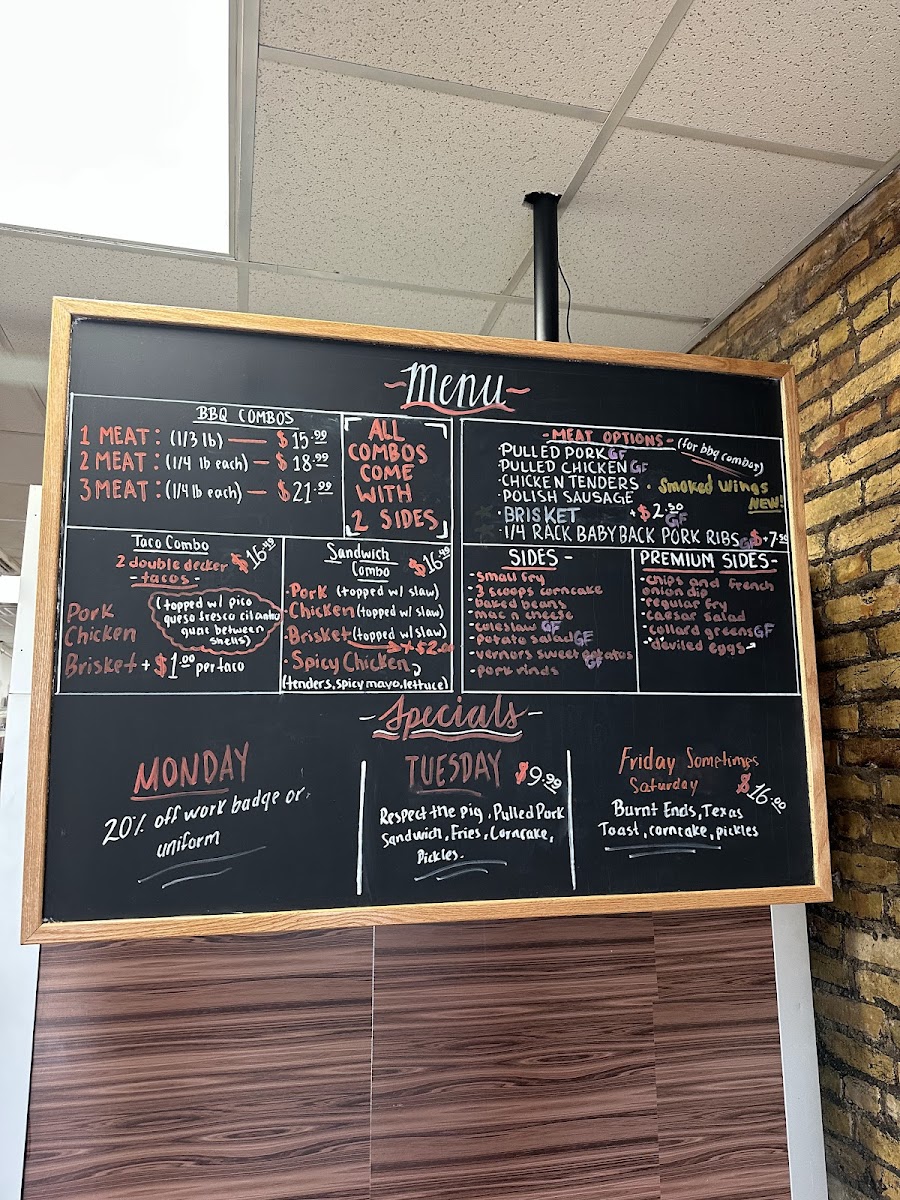 ~Menu~
BBQ COMBOS
1 MEAT: (1/3 lb) — $15.99
2 MEAT: (1/4 lb each) — $18.99
3 MEAT: (1/4 lb each) — $21.99
ALL
COMBOS
COME
WITH
2 SIDES
-MEAT OPTIONS- (for bbq combos)
·PULLED PORK GF
·PULLED CHICKEN GF
·CHICKEN TENDERS
·POLISH SAUSAGE
·Smoked Wings
NEW!
·BRISKET +$2.50 GF
·1/4 RACK BABY BACK PORK RIBS GF $+7.50
Taco Combo
2 double decker $16.49
-tacos-
Pork
Chicken
(topped w/ pico
queso fresco cilantro
guac between
shells)
Brisket + $1.00 per taco
Sandwich
Combo $16.49
·Pork (topped w/ slaw)
·Chicken (topped w/ slaw)
·Brisket (topped w/ slaw)
+$2.00
·Spicy Chicken
(tenders, spicy mayo, lettuce)
SIDES-
-small fry
-3 scoops corncake
-baked beans
-mac n cheese
-coleslaw GF
-potato salad GF
-vernors sweet potatos
GF
-pork rinds
PREMIUM SIDES-
-chips and french
onion dip
-regular fry
-caesar salad
-collard greens GF
-deviled eggs
-Specials-
MONDAY
20% off work badge or
uniform
TUESDAY $9.99
Respect the pig, Pulled Pork
Sandwich, Fries, Corncake,
Pickles.
Friday Sometimes
Saturday $16.00
Burnt Ends, Texas
Toast, corncake, pickles